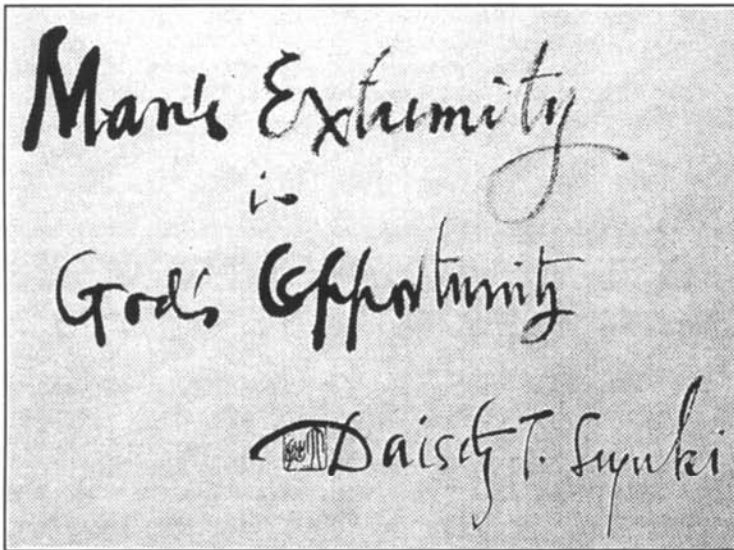 Man's Extremity
is
God's Opportunity
Daisetz T. Suzuki